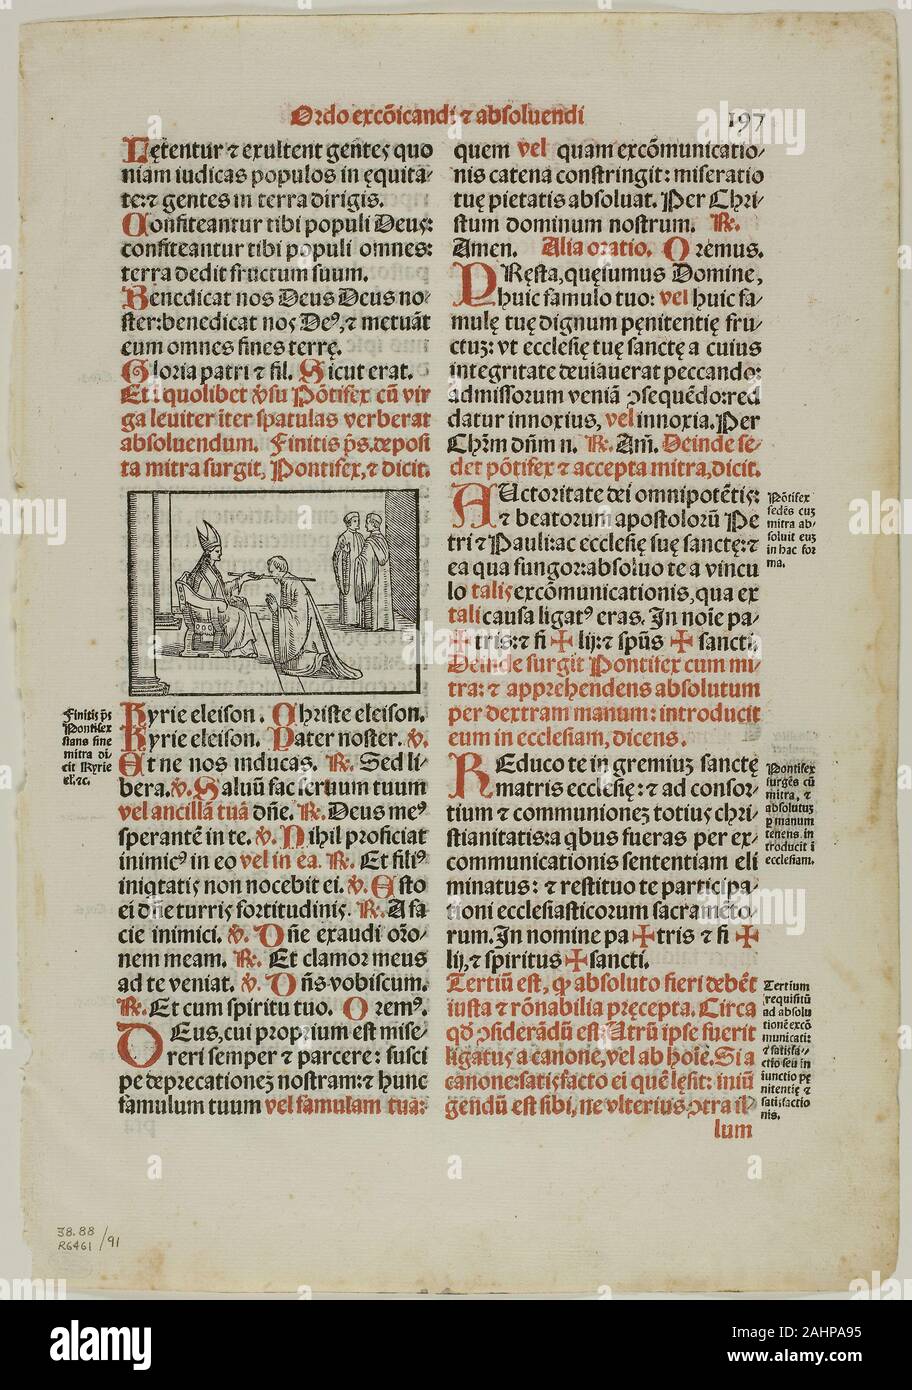 Ordo excõicandi ⁊ absoluendi
197
Lętentur ⁊ exultent gentes quo
niam iudicas populos in ęquita⸗
te:⁊ gentes in terra dirigis.
Confiteantur tibi populi Deus:
confiteantur tibi populi omnes:
terra dedit fructum suum.
Benedicat nos Deus Deus no⸗
ster:benedicat nos Deꝰ,⁊ metuāt
eum omnes fines terrę.
Gloria patri ⁊ fil. Sicut erat.
Et ī quolibet v̓su Põtifex cū vir
ga leuiter īter spatulas verberat
absoluendum. Finitis p̄s.deposi
ta mitra surgit, Pontifex,⁊ dicit.
Finitis p̄s
Pontifex
stans sine
mitra di⸗
cit Kyrie
el.⁊c.
Kyrie eleison. Christe eleison.
Kyrie eleison. Pater noster. ℣.
Et ne nos inducas. ℟. Sed li⸗
bera.℣. Saluū fac seruum tuum
vel ancillā tuā dñe. ℟. Deus meꝰ
sperantē in te. ℣. Nihil proficiat
inimicꝰ in eo vel in ea. ℟. Et filiꝰ
iniqtatis non nocebit ei. ℣. Esto
ei dñe turris fortitudinis. ℟. A fa
cie inimici. ℣. Dñe exaudi orõ⸗
nem meam. ℟. Et clamor meus
ad te veniat. ℣. Dñs vobiscum.
℟. Et cum spiritu tuo. Oremꝰ.
DEus,cui proprium est mise⸗
reri semper ⁊ parcere: susci
pe deprecationeꝫ nostram:⁊ hunc
famulum tuum vel famulam tuā:
quem vel quam excõmunicatio⸗
nis catena constringit: miseratio
tuę pietatis absoluat. Per Chri⸗
stum dominum nostrum. ℟.
Amen. Alia oratio. Oremus.
PRęsta,quęsumus Domine,
huic famulo tuo: vel huic fa⸗
mulę tuę dignum pęnitentię fru⸗
ctuꝫ: vt ecclesię tuę sanctę a cuius
integritate deuiauerat peccando:
admissorum veniā ↄsequēdo:red
datur innoxius, vel innoxia. Per
Chrm̄ dñm n. ℟. Am̄. Deinde se⸗
det põtifex ⁊ accepta mitra,dicit.
AUctoritate dei omnipotētis:
⁊ beatorum apostolorū Pe
tri ⁊ Pauli:ac ecclesię suę sanctę:⁊
ea qua fungor:absoluo te a vincu
lo talis excõmunicationis,qua ex
tali causa ligatꝰ eras. In noīe pa⸗
✠tris:⁊ fi✠lij:⁊ spūs ✠ sancti.
Põtifex
sedēs cuꝫ
mitra ab⸗
soluit euꝫ
in hac for
ma.
Deinde surgit Pontifex cum mi⸗
tra: ⁊ apprehendens absolutum
per dextram manum: introducit
eum in ecclesiam, dicens.
REduco te in gremiuꝫ sanctę
matris ecclesię: ⁊ ad consor⸗
tium ⁊ communioneꝫ totius chri⸗
stianitatis:a qbus fueras per ex⸗
communicationis sententiam eli
minatus: ⁊ restituo te participa⸗
tioni ecclesiasticorum sacramēto⸗
rum.In nomine pa✠tris ⁊ fi ✠
lij,⁊ spiritus ✠ sancti.
Pontifex
surgēs cū
mitra, ⁊
absolutuꝫ
ꝑ manum
tenens in
troducit ī
ecclesiam.
Tertiū est, ꝙ absoluto fieri debēt
iusta ⁊ rõnabilia pręcepta. Circa
qd̓ ↄsiderādū est Utrū ipse fuerit
ligatus a canone,vel ab hoīe. Si a
canone:satisfacto ei quē lęsit: iniū
gendū est sibi, ne vlterius ↄtra il⸗
lum
Tertium
requisitū
ad absolu
tionē excõ
municati:
⁊ satisfa⸗
ctio seu in
iunctio pę
nitentię ⁊
satisfactio
nis.
38.88
R6461 / 91
alamy
Image ID: 2AHPA95
www.alamy.com